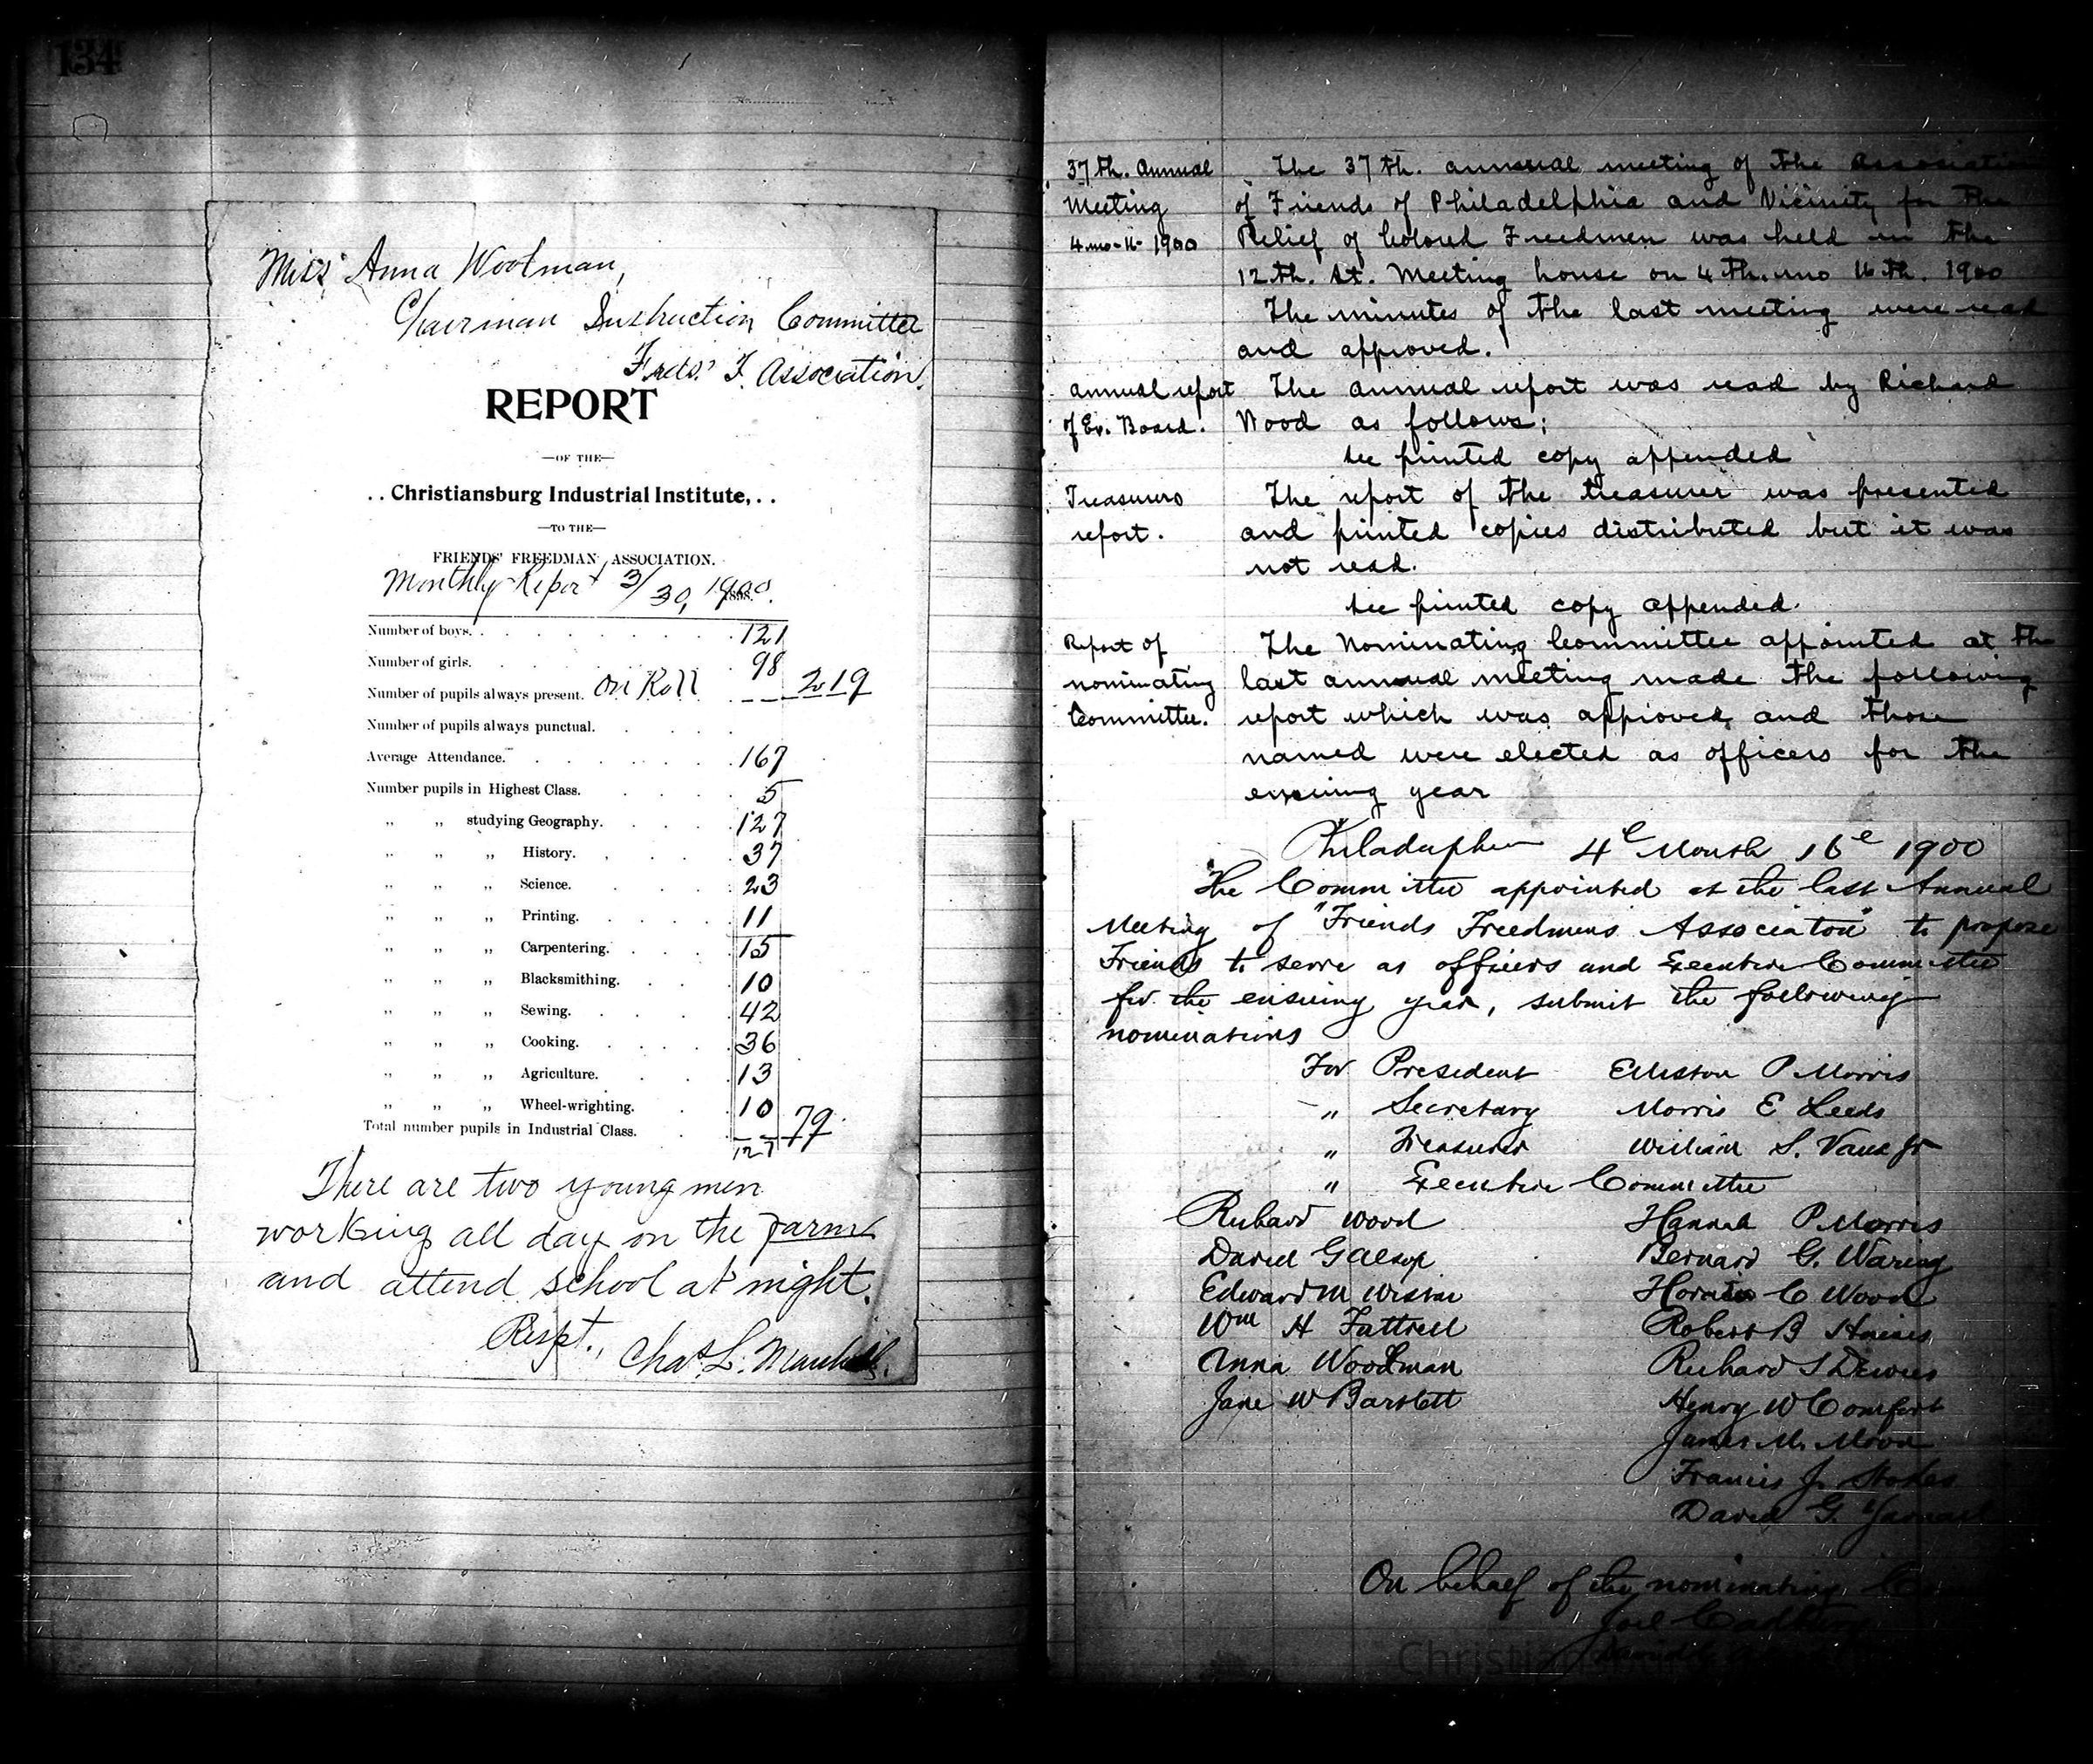 134
Miss Anna Woolman,
Chairman Instruction Committee
Freds.' F. Association.
REPORT
—OF THE—
. . Christiansburg Industrial Institute, . .
—TO THE—
FRIENDS' FREEDMAN ASSOCIATION.
Monthly Report 3/30, 1900.
Number of boys. 121
Number of girls. 98
Number of pupils always present. On Roll 219
Number of pupils always punctual.
Average Attendance. 167
Number pupils in Highest Class. 5
„ „ studying Geography. 127
„ „ „ History. 37
„ „ „ Science. 23
„ „ „ Printing. 11
„ „ „ Carpentering. 15
„ „ „ Blacksmithing. 10
„ „ „ Sewing. 42
„ „ „ Cooking. 36
„ „ „ Agriculture. 13
„ „ „ Wheel-wrighting. 10
Total number pupils in Industrial Class. 127 79
There are two young men
working all day on the farm
and attend school at night.
Respt., Chas. L. Marshall.
37th. Annual
Meeting
4 mo-16- 1900
The 37th. annual meeting of the Association
of Friends of Philadelphia and Vicinity for the
Relief of Colored Freedmen was held in the
12th. St. Meeting house on 4th. mo 16th. 1900
The minutes of the last meeting were read
and approved.
annual report
of Ex. Board.
The annual report was read by Richard
Wood as follows;
see printed copy appended
Treasurers
report.
The report of the treasurer was presented
and printed copies distributed but it was
not read.
see printed copy appended.
Report of
nominating
Committee.
The Nominating Committee appointed at the
last annual meeting made the following
report which was approved and those
named were elected as officers for the
ensuing year
Philadelphia 4th Month 16th 1900
The Committee appointed at the last Annual
Meeting of "Friends Freedmens Association" to propose
Friends to serve as officers and Executive Committee
for the ensuing year, submit the following
nominations
For President Elliston P Morris
„ Secretary Morris E Leeds
„ Treasurer William S. Vaux Jr
„ Executive Committee
Richard Wood Hannah P Morris
David G Alsop Bernard G. Waring
Edward M Wistar Horatio C Wood
Wm H Futtrell Robert B Haines
Anna Woolman Richard S Dewees
Jane W Bartlett Henry W Comfort
James M. Moon
Francis J. Stokes
David G. Yarnall
On behalf of the nominating
Joel Cadbury
Christian